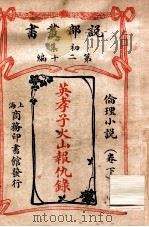 說部叢書
初集
第二十編
倫理小說
卷下
英孝子火山報仇錄
上海
商務印書館發行